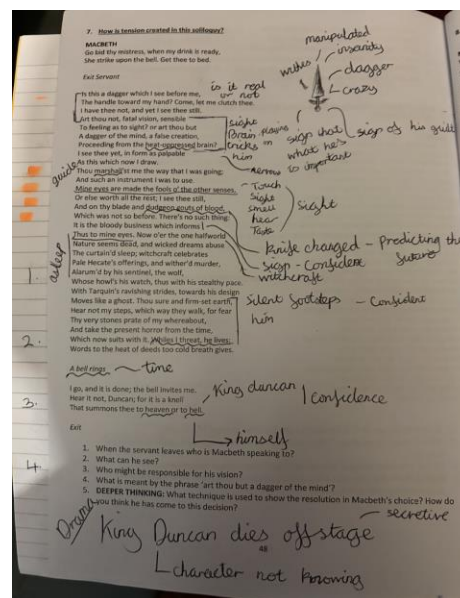 7. How is tension created in this soliloquy?
MACBETH
Go bid thy mistress, when my drink is ready,
She strike upon the bell. Get thee to bed.
Exit Servant
Is this a dagger which I see before me,
The handle toward my hand? Come, let me clutch thee.
I have thee not, and yet I see thee still.
Art thou not, fatal vision, sensible
To feeling as to sight? or art thou but
A dagger of the mind, a false creation,
Proceeding from the heat-oppressed brain?
I see thee yet, in form as palpable
As this which now I draw.
Thou marshall'st me the way that I was going;
And such an instrument I was to use.
Mine eyes are made the fools o' the other senses,
Or else worth all the rest; I see thee still,
And on thy blade and dudgeon gouts of blood,
Which was not so before. There's no such thing:
It is the bloody business which informs
Thus to mine eyes. Now o'er the one halfworld
Nature seems dead, and wicked dreams abuse
The curtain'd sleep; witchcraft celebrates
Pale Hecate's offerings, and wither'd murder,
Alarum'd by his sentinel, the wolf,
Whose howl's his watch, thus with his stealthy pace.
With Tarquin's ravishing strides, towards his design
Moves like a ghost. Thou sure and firm-set earth,
Hear not my steps, which way they walk, for fear
Thy very stones prate of my whereabout,
And take the present horror from the time,
Which now suits with it. Whiles I threat, he lives:
Words to the heat of deeds too cold breath gives.
A bell rings
I go, and it is done; the bell invites me.
Hear it not, Duncan; for it is a knell
That summons thee to heaven or to hell.
Exit
1. When the servant leaves who is Macbeth speaking to?
2. What can he see?
3. Who might be responsible for his vision?
4. What is meant by the phrase 'art thou but a dagger of the mind'?
5. DEEPER THINKING: What technique is used to show the resolution in Macbeth's choice? How do
you think he has come to this decision?
48
manipulated
insanity
dagger
crazy
is it real
or not
sight
Brain playing
tricks on
him
sign that
what he's
to important
sign of his guilt
guide
Touch
sight
smell
hear
Taste
sight
Knife changed - Predicting the
future
sign - Confident
witchcraft
asleep
Silent footsteps - Confident
him
time
King duncan
Confidence
himself
1.
2.
3.
4.
Drama
King Duncan dies off stage
secretive
character not knowing